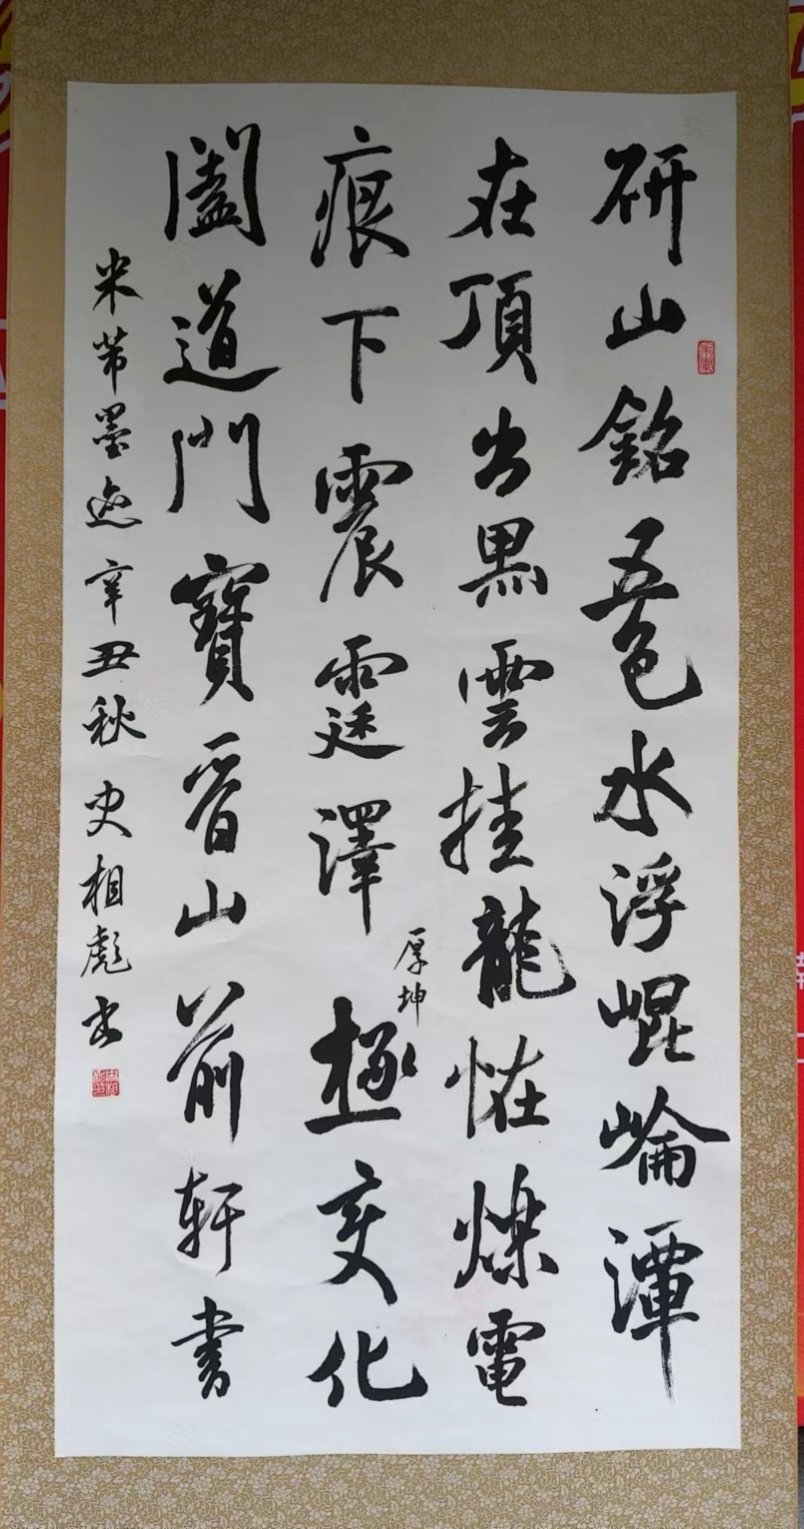 研山銘五色水浮崐崘潭
在頂出黑雲挂龍怪爍電
痕下震霆澤厚坤極变化
闔道門寶晉山前軒書
米芾墨迹辛丑秋史相彪书